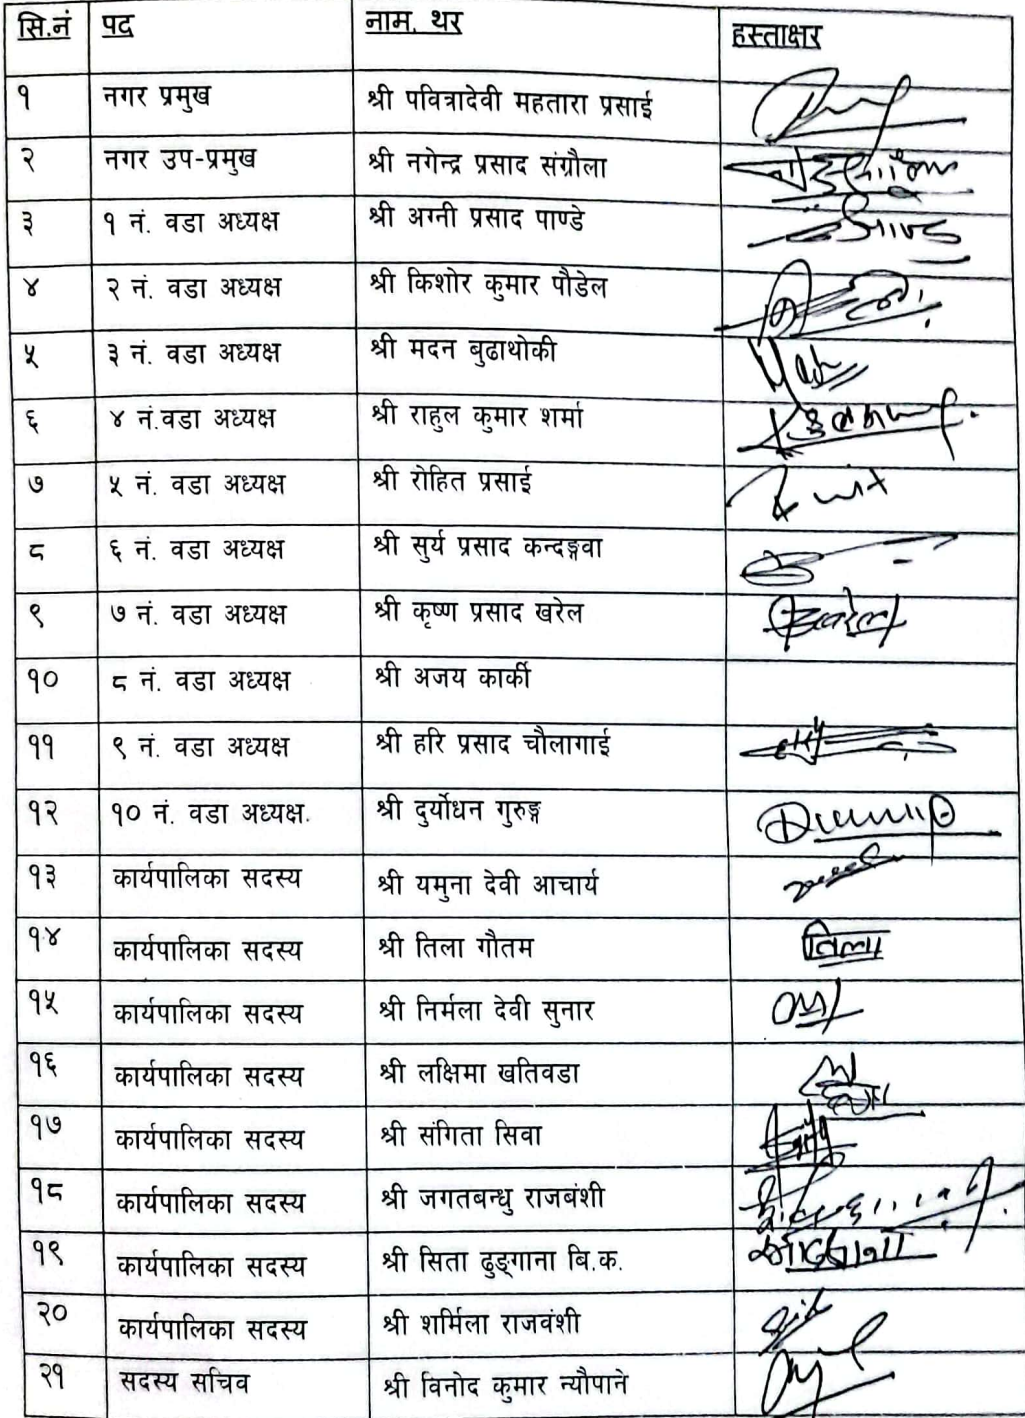 सि.नं पद नाम, थर हस्ताक्षर
१ नगर प्रमुख श्री पवित्रादेवी महतारा प्रसाई
२ नगर उप-प्रमुख श्री नगेन्द्र प्रसाद संग्रौला
३ १ नं. वडा अध्यक्ष श्री अग्नी प्रसाद पाण्डे
४ २ नं. वडा अध्यक्ष श्री किशोर कुमार पौडेल
५ ३ नं. वडा अध्यक्ष श्री मदन बुढाथोकी
६ ४ नं.वडा अध्यक्ष श्री राहुल कुमार शर्मा
७ ५ नं. वडा अध्यक्ष श्री रोहित प्रसाई
८ ६ नं. वडा अध्यक्ष श्री सुर्य प्रसाद कन्दङ्गवा
९ ७ नं. वडा अध्यक्ष श्री कृष्ण प्रसाद खरेल
१० ८ नं. वडा अध्यक्ष श्री अजय कार्की
११ ९ नं. वडा अध्यक्ष श्री हरि प्रसाद चौलागाई
१२ १० नं. वडा अध्यक्ष. श्री दुर्योधन गुरुङ्ग
१३ कार्यपालिका सदस्य श्री यमुना देवी आचार्य
१४ कार्यपालिका सदस्य श्री तिला गौतम तिला
१५ कार्यपालिका सदस्य श्री निर्मला देवी सुनार
१६ कार्यपालिका सदस्य श्री लक्षिमा खतिवडा
१७ कार्यपालिका सदस्य श्री संगिता सिवा
१८ कार्यपालिका सदस्य श्री जगतबन्धु राजबंशी
१९ कार्यपालिका सदस्य श्री सिता ढुङ्गाना बि.क.
२० कार्यपालिका सदस्य श्री शर्मिला राजवंशी
२१ सदस्य सचिव श्री विनोद कुमार न्यौपाने